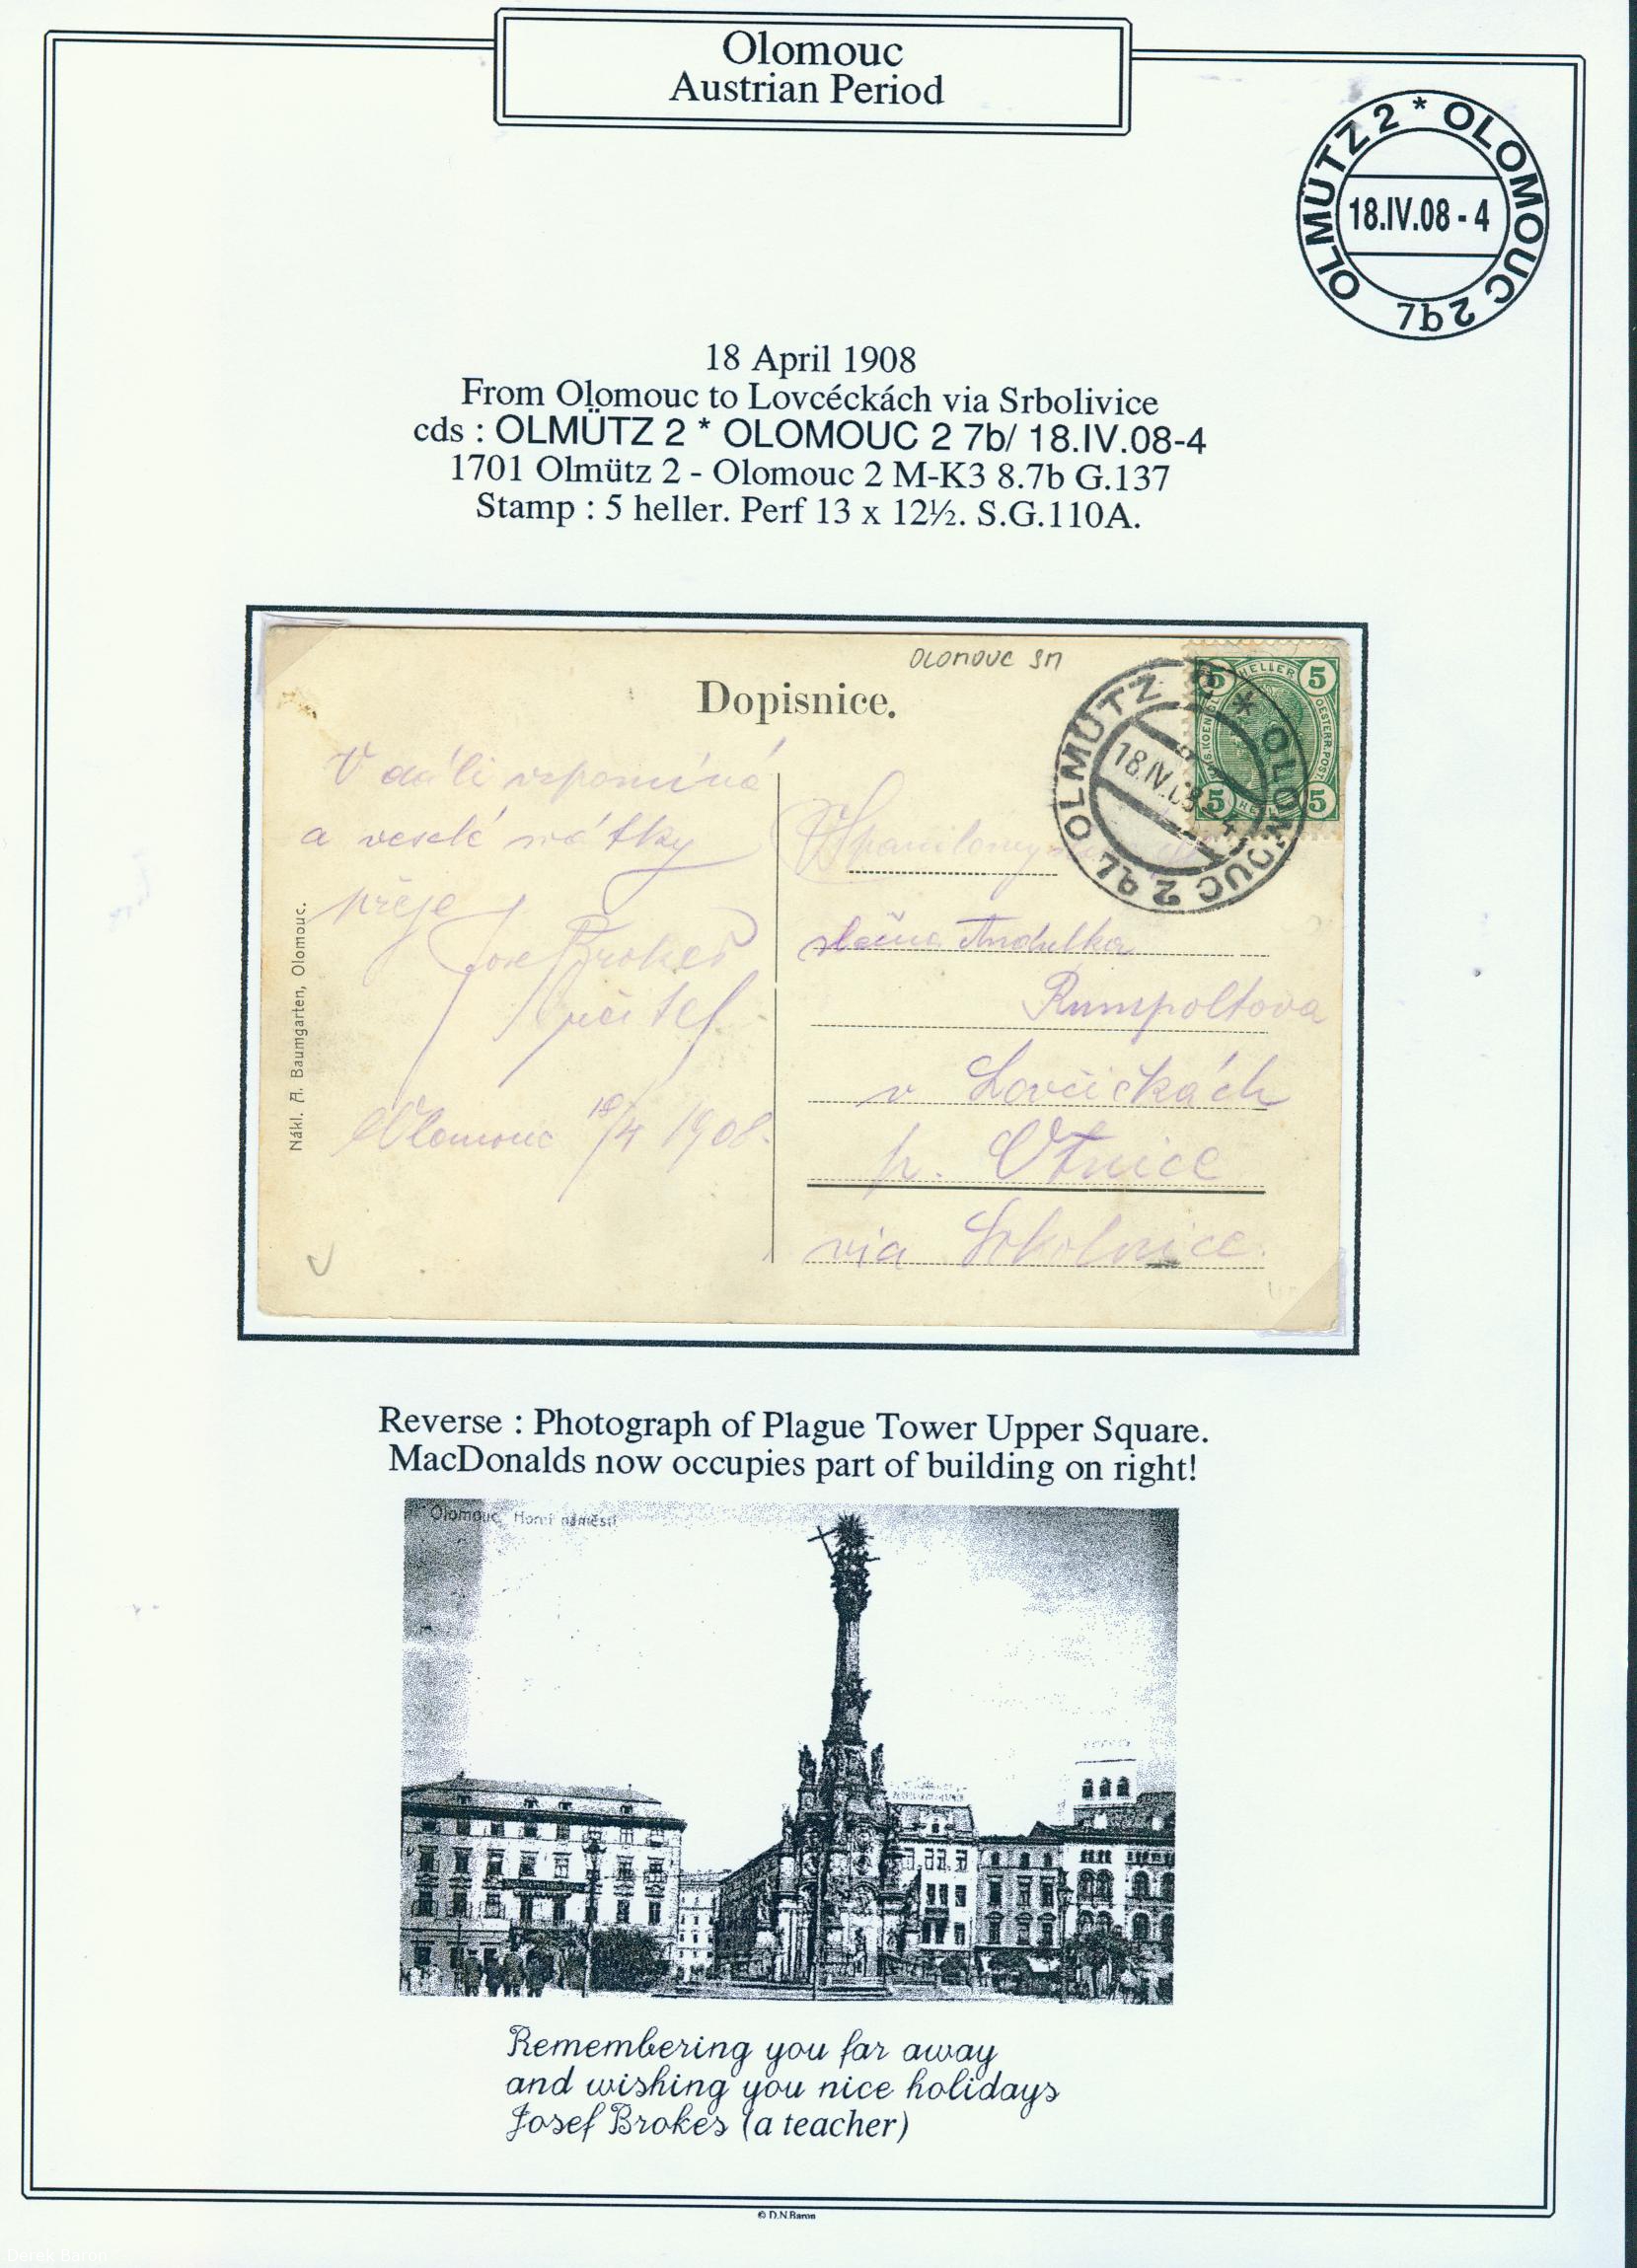 Olomouc
Austrian Period
OLMÜTZ 2 * OLOMOUC 2 7b
18.IV.08 - 4
18 April 1908
From Olomouc to Lovcéckách via Srbolivice
cds : OLMÜTZ 2 * OLOMOUC 2 7b/ 18.IV.08-4
1701 Olmütz 2 - Olomouc 2 M-K3 8.7b G.137
Stamp : 5 heller. Perf 13 x 12½. S.G.110A.
OLOMOUC SM
Dopisnice.
OLMÜTZ 2 * OLOMOUC 2 7b
18.IV.08-4
5 HELLER 5
5 5
V dáli vzpomíná
a veselé svátky
přeje
Josef Brokeš
učitel
Olomouc 18/4 1908.
Nákl. A. Baumgarten, Olomouc.
slečna Andulka
Rumpoltova
v Lovčičkách
p. Otnice
via Sokolnice.
Reverse : Photograph of Plague Tower Upper Square.
MacDonalds now occupies part of building on right!
Olomouc, Horní náměstí
Remembering you far away
and wishing you nice holidays
Josef Brokes (a teacher)
© D.N.Baron
Derek Baron